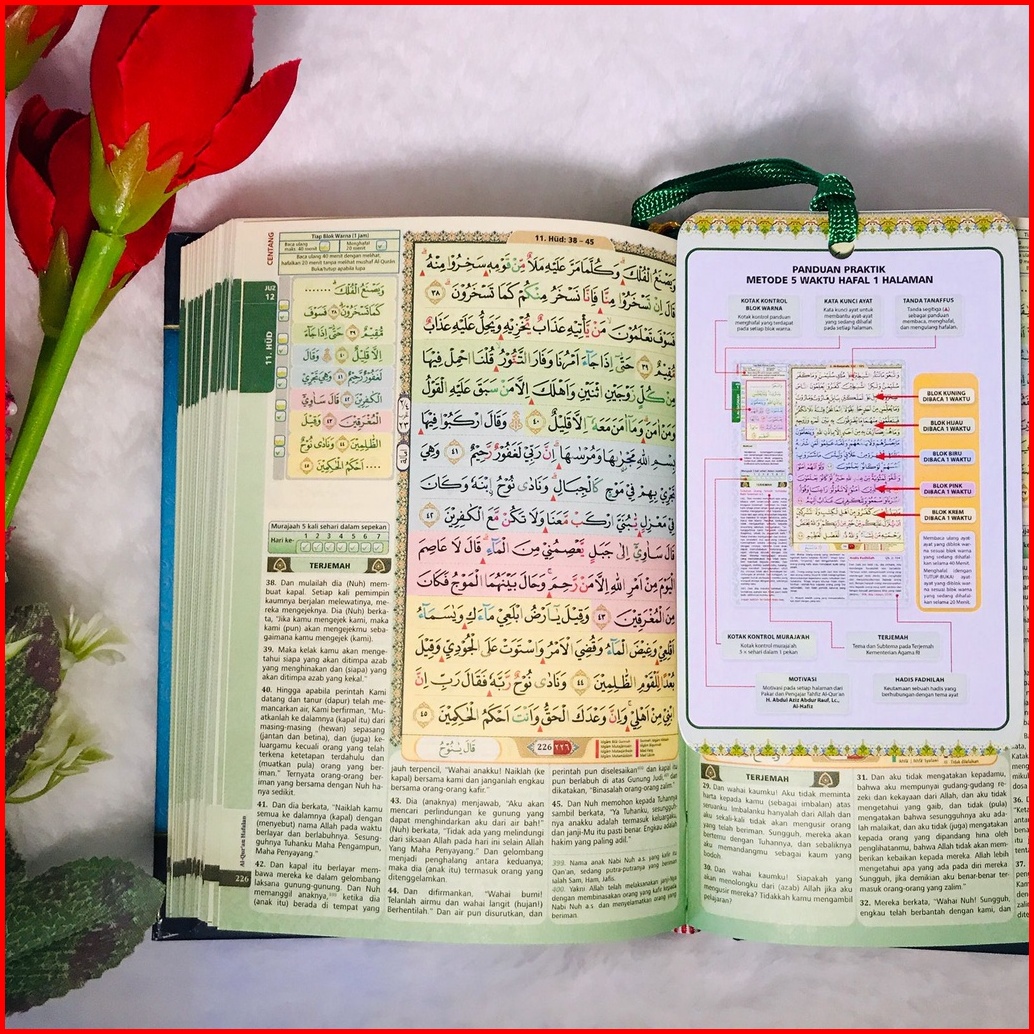 CENTANG
Tiap Blok Warna (1 jam)
Baca ulang
maks. 40 menit
Menghafal
20 menit
Baca ulang 40 menit dengan melihat,
hafalkan 20 menit tanpa melihat mushaf Al Qurān
Buka/tutup apabila lupa
JUZ
12
11. HŪD
وَيَصْنَعُ الْفُلْكَ ........
كَمَا تَسْخَرُوْنَ ٣٨ فَسَوْفَ
مُّقِيْمٌ ٣٩ حَتّٰىٓ اِذَا جَاۤءَ
اِلَّا قَلِيْلٌ ٤٠ وَقَالَ
لَغَفُوْرٌ رَّحِيْمٌ ٤١ وَهِيَ تَجْرِيْ
الْكٰفِرِيْنَ ٤٢ قَالَ سَاٰوِيْٓ
الْمُغْرَقِيْنَ ٤٣ وَقِيْلَ
الظّٰلِمِيْنَ ٤٤ وَنَادٰى نُوْحٌ
.... اَحْكَمُ الْحٰكِمِيْنَ ٤٥
Murajaah 5 kali sehari dalam sepekan
Hari ke-
1 2 3 4 5 6 7
TERJEMAH
38. Dan mulailah dia (Nuh) mem-
buat kapal. Setiap kali pemimpin
kaumnya berjalan melewatinya, me-
reka mengejeknya. Dia (Nuh) berka-
ta, "Jika kamu mengejek kami, maka
kami (pun) akan mengejekmu seba-
gaimana kamu mengejek (kami).
39. Maka kelak kamu akan menge-
tahui siapa yang akan ditimpa azab
yang menghinakan dan (siapa) yang
akan ditimpa azab yang kekal."
40. Hingga apabila perintah Kami
datang dan tanur (dapur) telah me-
mancarkan air, Kami berfirman, "Mu-
atkanlah ke dalamnya (kapal itu) dari
masing-masing (hewan) sepasang
(jantan dan betina), dan (juga) ke-
luargamu kecuali orang yang telah
terkena ketetapan terdahulu dan
(muatkan pula) orang yang ber-
iman." Ternyata orang-orang ber-
iman yang bersama dengan Nuh ha-
nya sedikit.
41. Dan dia berkata, "Naiklah kamu
semua ke dalamnya (kapal) dengan
(menyebut) nama Allah pada waktu
berlayar dan berlabuhnya. Sesung-
guhnya Tuhanku Maha Pengampun,
Maha Penyayang."
42. Dan kapal itu berlayar mem-
bawa mereka ke dalam gelombang
laksana gunung-gunung. Dan Nuh
memanggil anaknya, ketika dia
(anak itu) berada di tempat yang
Al-Qur'an Hafalan
226
11. Hūd: 38 – 45
وَيَصْنَعُ الْفُلْكَ وَكُلَّمَا مَرَّ عَلَيْهِ مَلَاٌ مِّنْ قَوْمِهٖ سَخِرُوْا مِنْهُ
قَالَ اِنْ تَسْخَرُوْا مِنَّا فَاِنَّا نَسْخَرُ مِنْكُمْ كَمَا تَسْخَرُوْنَ ٣٨
فَسَوْفَ تَعْلَمُوْنَ مَنْ يَّأْتِيْهِ عَذَابٌ يُّخْزِيْهِ وَيَحِلُّ عَلَيْهِ عَذَابٌ
مُّقِيْمٌ ٣٩ حَتّٰىٓ اِذَا جَاۤءَ اَمْرُنَا وَفَارَ التَّنُّوْرُ قُلْنَا احْمِلْ فِيْهَا
مِنْ كُلٍّ زَوْجَيْنِ اثْنَيْنِ وَاَهْلَكَ اِلَّا مَنْ سَبَقَ عَلَيْهِ الْقَوْلُ
وَمَنْ اٰمَنَ وَمَآ اٰمَنَ مَعَهٗٓ اِلَّا قَلِيْلٌ ٤٠ وَقَالَ ارْكَبُوْا فِيْهَا
بِسْمِ اللّٰهِ مَجْرٰىهَا وَمُرْسٰىهَا اِنَّ رَبِّيْ لَغَفُوْرٌ رَّحِيْمٌ ٤١ وَهِيَ
تَجْرِيْ بِهِمْ فِيْ مَوْجٍ كَالْجِبَالِ وَنَادٰى نُوْحُ ابْنَهٗ وَكَانَ
فِيْ مَعْزِلٍ يّٰبُنَيَّ ارْكَبْ مَّعَنَا وَلَا تَكُنْ مَّعَ الْكٰفِرِيْنَ ٤٢
قَالَ سَاٰوِيْٓ اِلٰى جَبَلٍ يَّعْصِمُنِيْ مِنَ الْمَاۤءِ قَالَ لَا عَاصِمَ
الْيَوْمَ مِنْ اَمْرِ اللّٰهِ اِلَّا مَنْ رَّحِمَ وَحَالَ بَيْنَهُمَا الْمَوْجُ فَكَانَ
مِنَ الْمُغْرَقِيْنَ ٤٣ وَقِيْلَ يٰٓاَرْضُ ابْلَعِيْ مَاۤءَكِ وَيٰسَمَاۤءُ
اَقْلِعِيْ وَغِيْضَ الْمَاۤءُ وَقُضِيَ الْاَمْرُ وَاسْتَوَتْ عَلَى الْجُوْدِيِّ وَقِيْلَ
بُعْدًا لِّلْقَوْمِ الظّٰلِمِيْنَ ٤٤ وَنَادٰى نُوْحٌ رَّبَّهٗ فَقَالَ رَبِّ اِنَّ
ابْنِيْ مِنْ اَهْلِيْ وَاِنَّ وَعْدَكَ الْحَقُّ وَاَنْتَ اَحْكَمُ الْحٰكِمِيْنَ ٤٥
قَالَ يٰنُوْحُ
226 ٢٢٦
jauh terpencil, "Wahai anakku! Naiklah (ke
kapal) bersama kami dan janganlah engkau
bersama orang-orang kafir."
43. Dia (anaknya) menjawab, "Aku akan
mencari perlindungan ke gunung yang
dapat menghindarkan aku dari air bah!"
(Nuh) berkata, "Tidak ada yang melindungi
dari siksaan Allah pada hari ini selain Allah
Yang Maha Penyayang." Dan gelombang
menjadi penghalang antara keduanya;
maka dia (anak itu) termasuk orang yang
ditenggelamkan.
44. Dan difirmankan, "Wahai bumi!
Telanlah airmu dan wahai langit (hujan!)
berhentilah." Dan air pun disurutkan, dan
perintah pun diselesaikan dan kapal itu
pun berlabuh di atas Gunung Judi, dan
dikatakan, "Binasalah orang-orang zalim."
45. Dan Nuh memohon kepada Tuhannya
sambil berkata, "Ya Tuhanku, sesungguh-
nya anakku adalah termasuk keluargaku,
dan janji-Mu itu pasti benar. Engkau adalah
hakim yang paling adil."
399. Nama anak Nabi Nuh a.s. yang kafir itu
Qan'an, sedang putra-putranya yang beriman
ialah Sam, Ham, Jafis.
400. Yakni Allah telah melaksanakan janji-Nya
dengan membinasakan orang yang kafir kepada
Nabi Nuh a.s. dan menyelamatkan orang yang
beriman
PANDUAN PRAKTIK
METODE 5 WAKTU HAFAL 1 HALAMAN
KOTAK KONTROL
BLOK WARNA
Kotak kontrol panduan
menghafal yang terdapat
pada setiap blok warna.
KATA KUNCI AYAT
Kata kunci untuk
membantu ayat-ayat
yang sedang dihafal
pada setiap halaman.
TANDA TANAFFUS
Tanda segitiga (▲)
sebagai panduan
membaca, menghafal,
dan mengulang hafalan.
BLOK KUNING
DIBACA 1 WAKTU
BLOK HIJAU
DIBACA 1 WAKTU
BLOK BIRU
DIBACA 1 WAKTU
BLOK PINK
DIBACA 1 WAKTU
BLOK KREM
DIBACA 1 WAKTU
Membaca ulang ayat-
ayat yang diblok war-
na sesuai blok warna
yang sedang dihafal-
kan selama 40 Menit.
Menghafal (dengan
TUTUP BUKA) ayat-
ayat yang diblok war-
na sesuai blok warna
yang sedang dihafal-
kan selama 20 Menit.
KOTAK KONTROL MURAJA'AH
Kotak kontrol muraja'ah
5 x sehari dalam 1 pekan
TERJEMAH
Tema dan Subtema pada Terjemah
Kementerian Agama RI
MOTIVASI
Motivasi pada setiap halaman dari
Pakar dan Pengajar Tahfiz Al-Qur'an
H. Abdul Aziz Abdur Rauf, Lc.,
Al-Hafiz
HADIS FADHILAH
Keutamaan sebuah hadis yang
berhubungan dengan tema ayat
TERJEMAH
29. Dan wahai kaumku! Aku tidak meminta
harta kepada kamu (sebagai imbalan) atas
seruanku. Imbalanku hanyalah dari Allah dan
aku sekali-kali tidak akan mengusir orang
yang telah beriman. Sungguh, mereka akan
bertemu dengan Tuhannya, dan sebaliknya
aku memandangmu sebagai kaum yang
bodoh.
30. Dan wahai kaumku! Siapakah yang
akan menolongku dari (azab) Allah jika aku
mengusir mereka? Tidakkah kamu mengambil
pelajaran?
31. Dan aku tidak mengatakan kepadamu,
bahwa aku mempunyai gudang-gudang re-
zeki dan kekayaan dari Allah, dan aku tidak
mengetahui yang gaib, dan tidak (pula)
mengatakan bahwa sesungguhnya aku ada-
lah malaikat, dan aku tidak (juga) mengatakan
kepada orang yang dipandang hina oleh
penglihatanmu, bahwa Allah tidak akan mem-
berikan kebaikan kepada mereka. Allah lebih
mengetahui apa yang ada pada diri mereka.
Sungguh, jika demikian aku benar-benar ter-
masuk orang-orang yang zalim."
32. Mereka berkata, "Wahai Nuh! Sungguh,
engkau telah berbantah dengan kami, dan